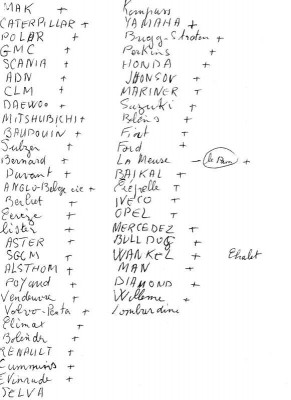 MAK +
CATERPILLAR +
POLAR +
GMC +
SCANIA +
ADN +
CLM +
DAEWOO +
MITSHUBICHI +
BAUDOUIN +
Sulzer +
Bernard +
Duvant +
ANGLO-Belge cie +
Berliet +
Lister +
ASTER +
SGCM +
ALSTHOM +
POYARD +
Vendeuvre +
Volvo-Penta +
Climax +
Bolinder +
RENAULT +
Cummins +
Evinrude +
SELVA
Kompass
YAMAHA +
Bugg-Straton +
Perkins +
HONDA +
JHONSON +
MARINER +
Suzuki +
Fiat +
Ford +
La Meuse - +
BAIKAL +
Crepelle +
IVECO +
OPEL +
MERCEDEZ +
BULLDOG +
WANKEL + Chalet
MAN +
DIAMOND +
Willeme +
Lombardini